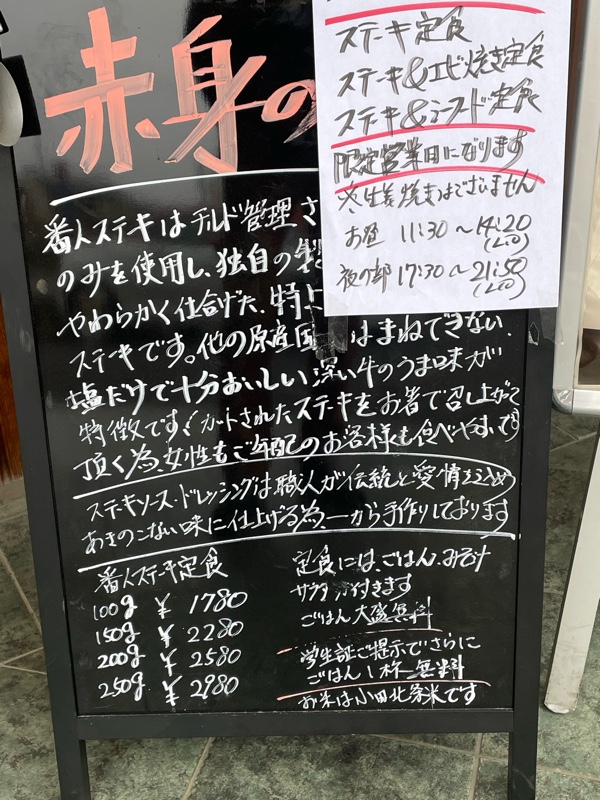 赤身の
ステーキ定食
ステーキ&エビ焼き定食
ステーキ&シーフード定食
限定営業日になります
生姜焼きはございません
お昼 11:30〜14:20
(L.O)
夜の部 17:30〜21:50
(L.O)
番人ステーキはチルド管理さ
のみを使用し、独自の製
やわらかく仕上げた、特上
ステーキです。他の原産国 はまねできない、
塩だけで十分おいしい深い牛のうま味が
特徴です!カートされたステーキをお箸で召し上がって
頂く為、女性もご年配のお客様も食べやすいです
ステーキソース・ドレッシングは職人が伝統と愛情を込め
あきのこない味に仕上げる為、一から手作りしております
番人ステーキ定食
100g ¥ 1780
150g ¥ 2280
200g ¥ 2580
250g ¥ 2980
定食には、ごはん、みそ汁
サラダが付きます
ごはん大盛無料
学生証ご提示でさらに
ごはん1杯無料
お米は小田北条米です